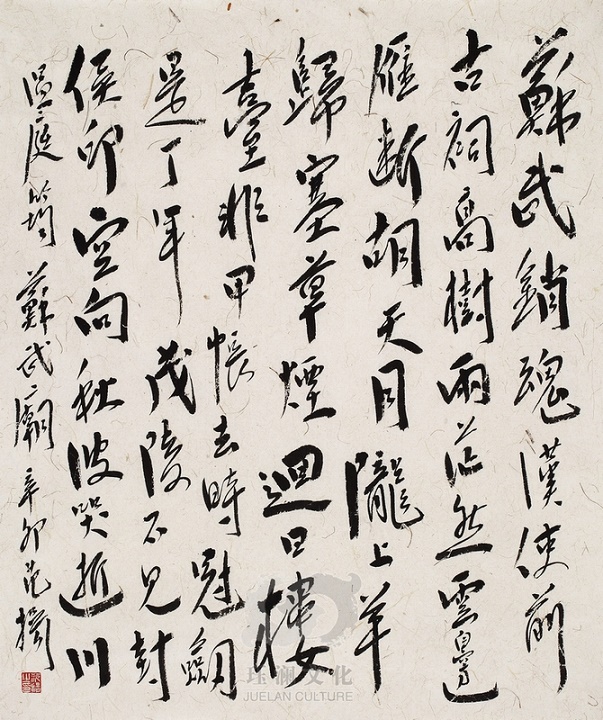 蘇武銷魂漢使前
古祠高樹兩茫然雲邊
雁斷胡天月隴上羊
歸塞草煙迴日樓
臺非甲帳去時冠劍
是丁年茂陵不見封
侯印空向秋波哭逝川
温庭筠蘇武廟辛卯范揚
珏澜文化
JUELAN CULTURE